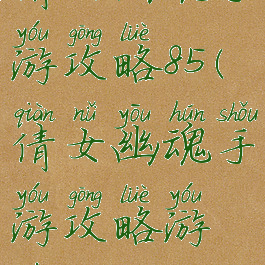 yóu gōng lüè
游攻略85(
qiàn nǚ yōu hún shǒu
倩女幽魂手
yóu gōng lüè yóu
游攻略游